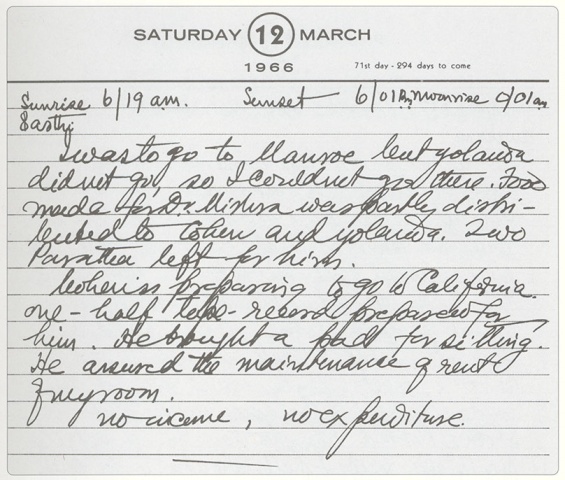 SATURDAY 12 MARCH
1966 71st day - 294 days to come
Sunrise 6/19 a.m. Sunset 6/01 P.M. Moonrise 0/01 am
Sasthi
I was to go to Monroe but yolanda
did not go, so I could not go there. Food
made for Dr. Mishra was partly distri-
buted to Cohen and yolanda. Two
Paratha left for him.
Cohen is preparing to go to California.
one-half tape-record prepared for
him. He brought a pad for sitting.
He assured the maintenance of rent
of my room.
no income, no expenditure.